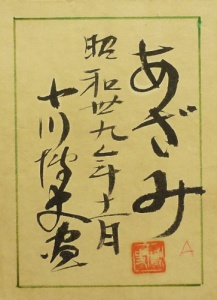 あざみ
昭和廿九年十一月
中川博史画
A